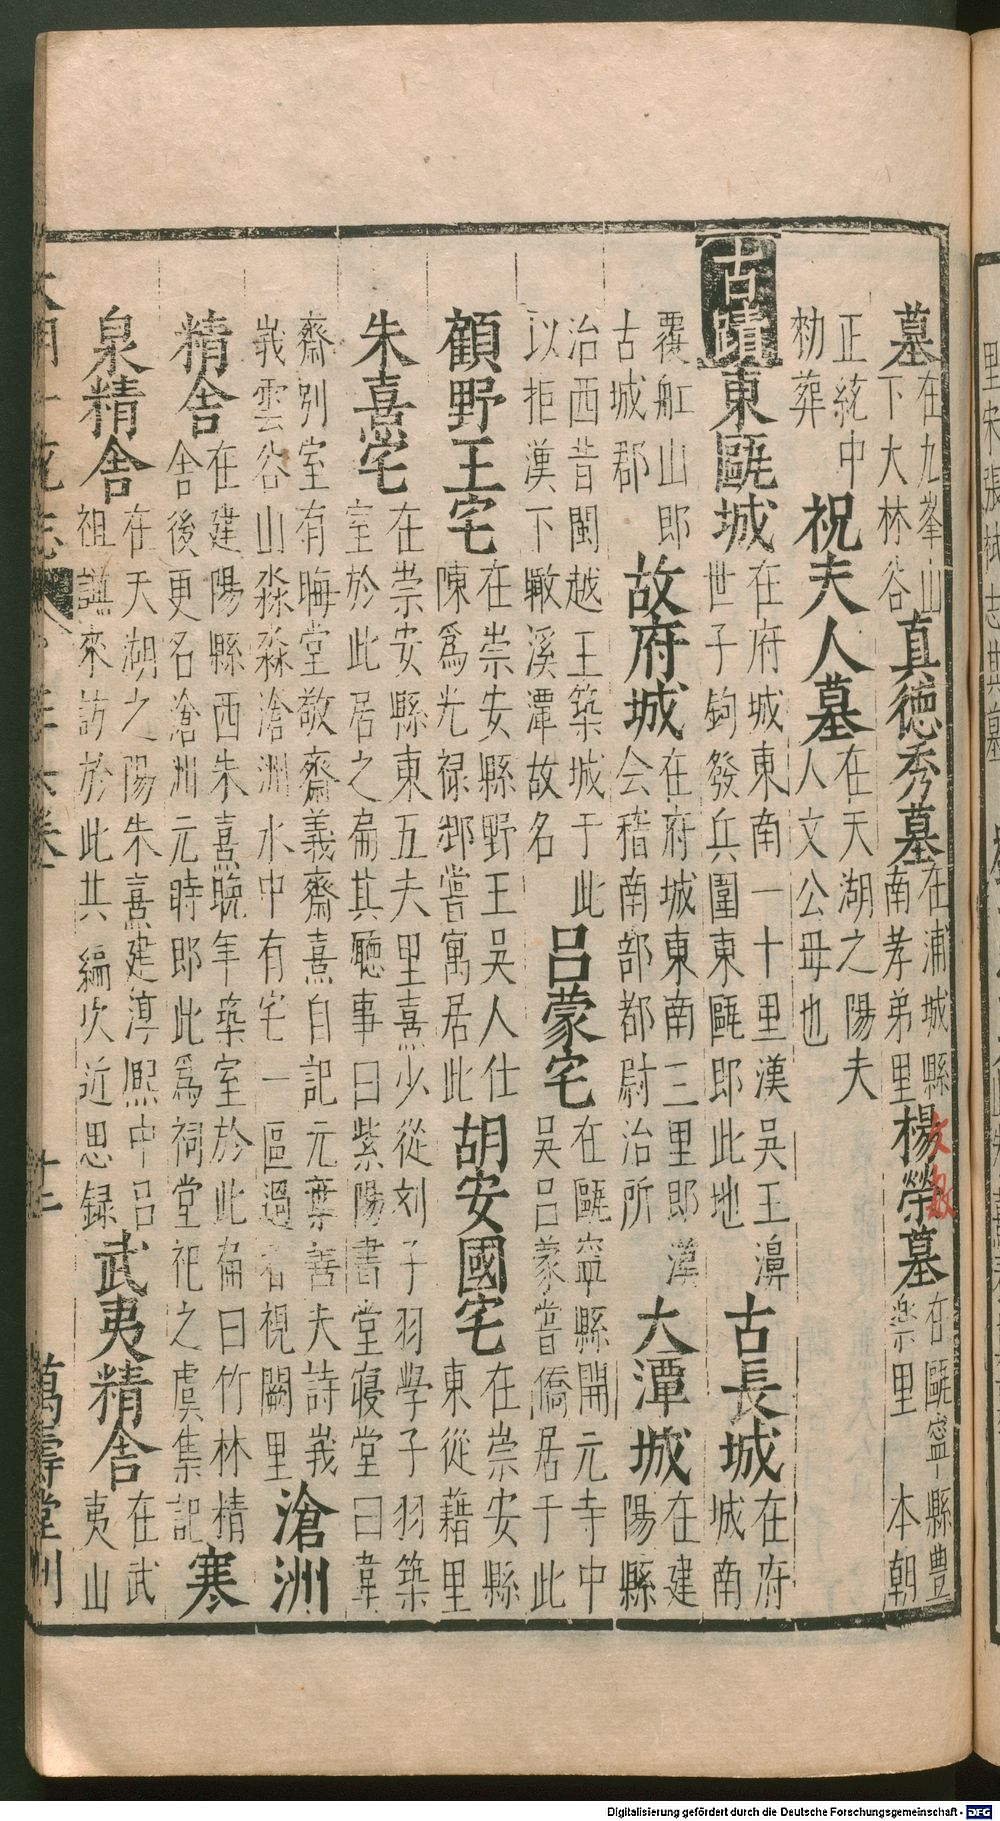 墓在九峯山下大林谷真德秀墓在浦城縣南孝弟里楊榮墓在甌寧縣豊樂里 本朝
文敏
正統中勑葬祝夫人墓在天湖之陽夫人文公母也
古蹟東甌城在府城東南一十里漢吳王濞世子鉤發兵圍東甌即此地古長城在府城南
覆舡山即古城郡故府城在府城東南三里即漢会稽南部都尉治所大潭城在建陽縣
治西昔閩越王築城于此以拒漢下瞰溪潭故名呂蒙宅在甌寧縣開元寺中吳呂蒙嘗僑居于此
顧野王宅在崇安縣野王吳人仕陳爲光禄卿嘗寓居此胡安國宅在崇安縣東從籍里
朱熹宅在崇安縣東五夫里熹少從刘子羽学子羽築室於此居之扁其聽事曰紫陽書堂寢堂曰韋
齋別室有晦堂敬齋義齋熹自記元葉善夫詩峩峩雲谷山淼淼滄洲水中有宅一區過者視闕里滄洲
精舍在建陽縣西朱熹晚年築室於此扁曰竹林精舍後更名滄洲元時即此爲祠堂祀之虞集記寒
泉精舍在天湖之陽朱熹建淳熙中呂祖謙來訪於此共編次近思録武夷精舍在武夷山
大明一統志 萬壽堂刊
Digitalisierung gefördert durch die Deutsche Forschungsgemeinschaft - DFG